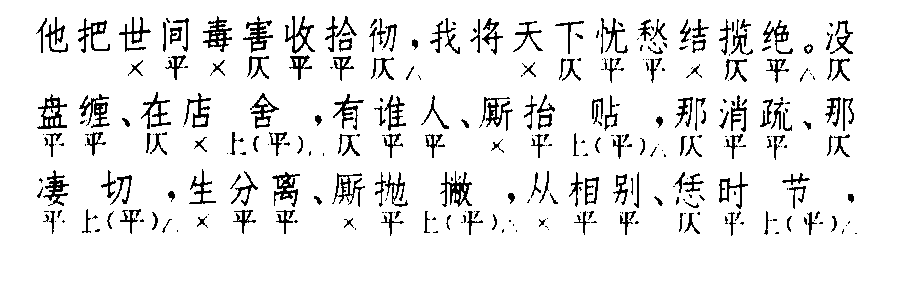 他把世间毒害收拾彻，我将天下忧愁结揽绝。没
×平×仄平平仄△×仄平平×仄平△仄
盘缠、在店舍，有谁人、厮抬贴，那消疏、那
平平仄×上(平)△仄平平×平上(平)△仄平平仄
凄切，生分离、厮抛撇，从相别、恁时节，
平上(平)△×平平×平上(平)△×平平仄平上(平)△